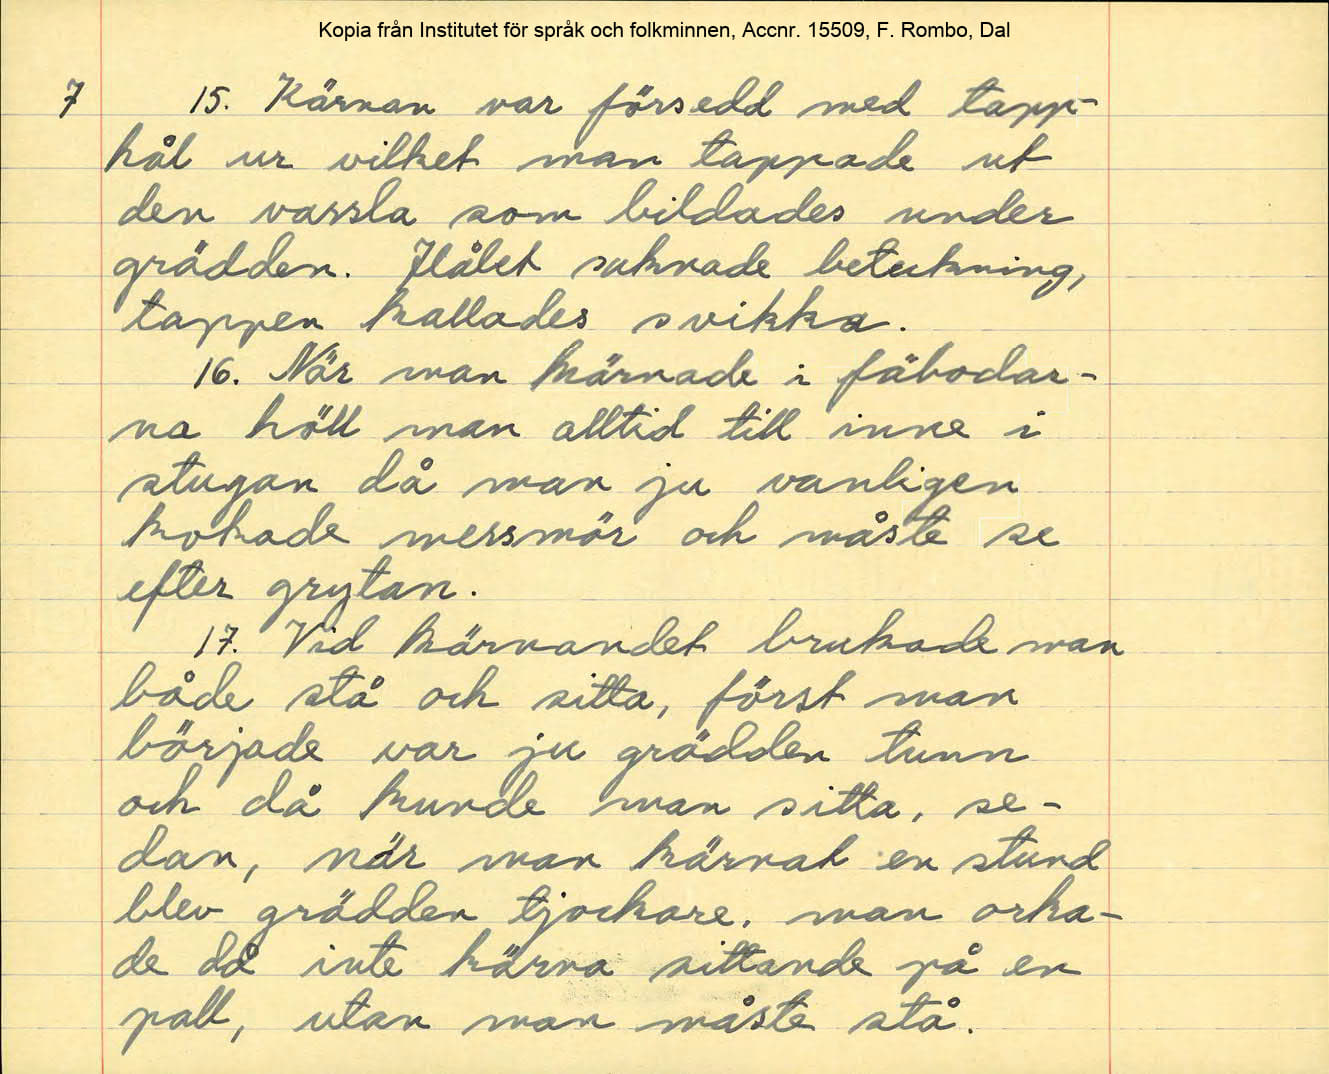 Kopia från Institutet för språk och folkminnen, Accnr. 15509, F. Rombo, Dal
7 15. Kärnan var försedd med tapp-
hål ur vilket man tappade ut
den vassla som bildades under
grädden. Hålet saknade beteckning,
tappen kallades svikka.
16. När man kärnade i fäbodar-
na höll man alltid till inne i
stugan då man ju vanligen
kokade messmör och måste se
efter grytan.
17. Vid kärnandet brukade man
både stå och sitta, först man
började var ju grädden tunn
och då kunde man sitta, se-
dan, när man kärnat en stund
blev grädden tjockare, man orka-
de då inte kärna sittande på en
pall, utan man måste stå.